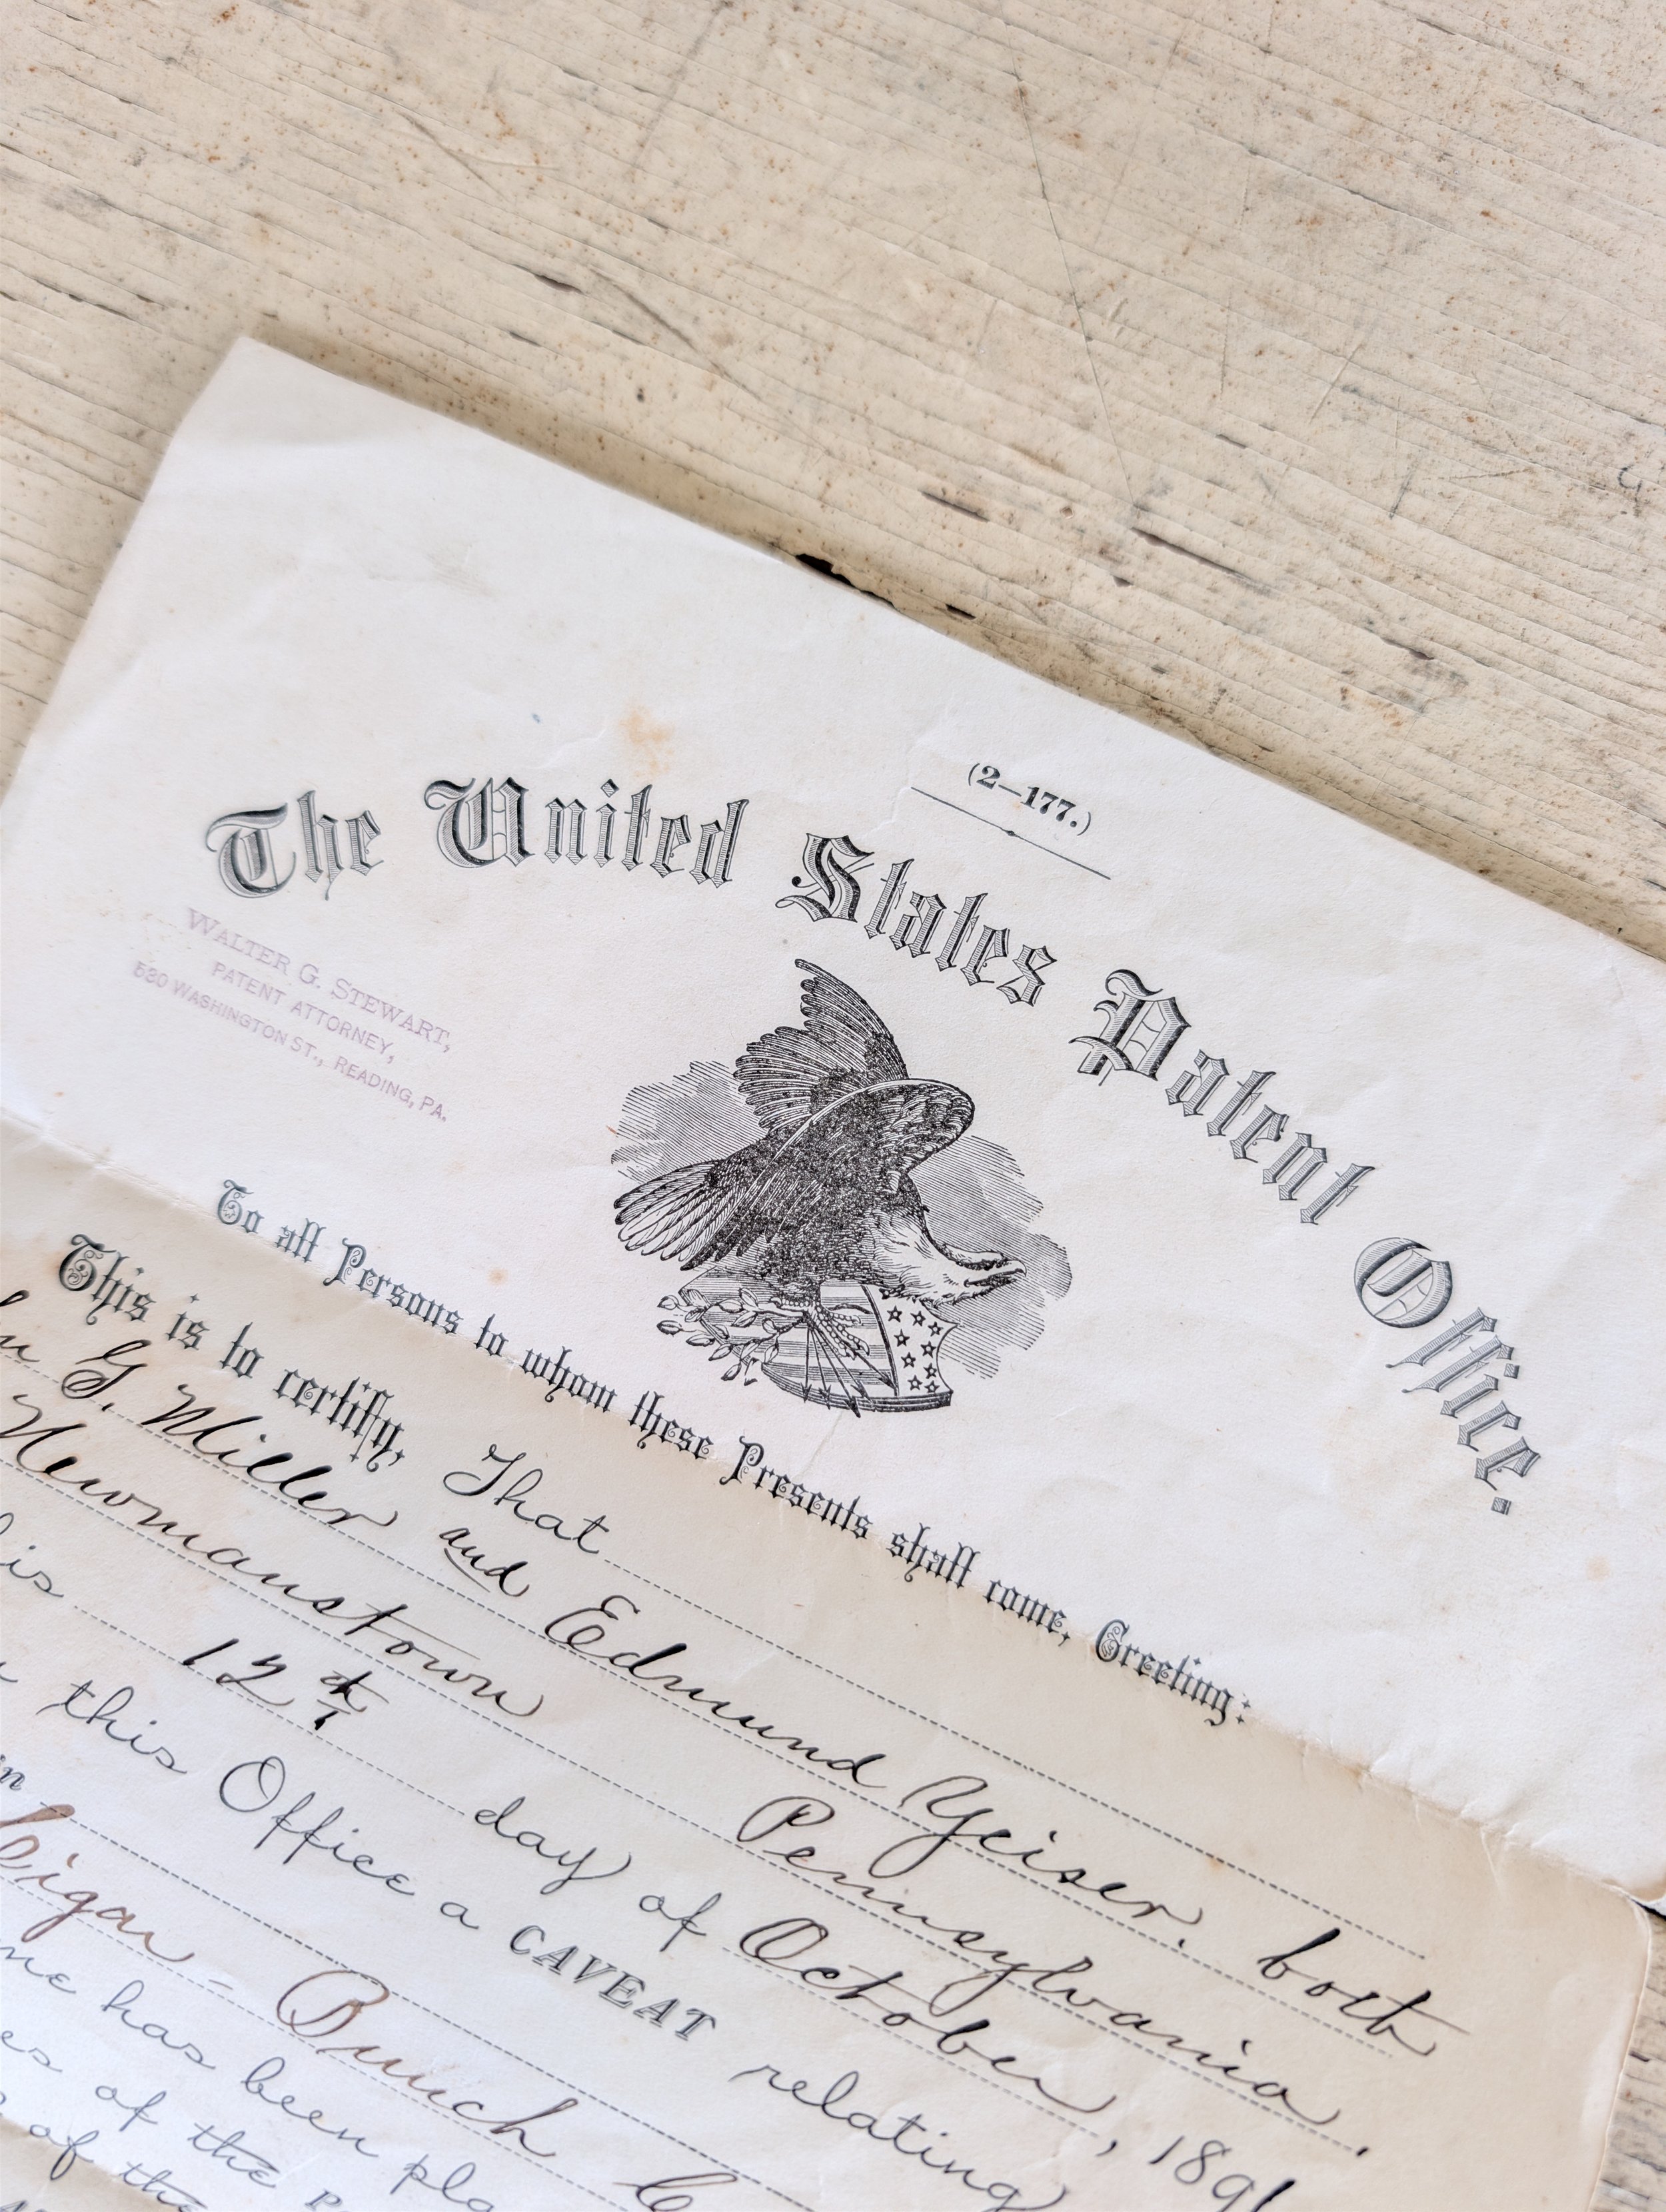 (2—177.)
The United States Patent Office.
WALTER G. STEWART,
PATENT ATTORNEY,
530 WASHINGTON ST., READING, PA.
To all Persons to whom these Presents shall come, Greeting:
This is to certify, That
G. Miller and Edmund Yeiser, both
Newmanstown Pennsylvania.
is 12th day of October, 1891
this Office a CAVEAT relating
Cigar-Bunch
has been
of the
of the